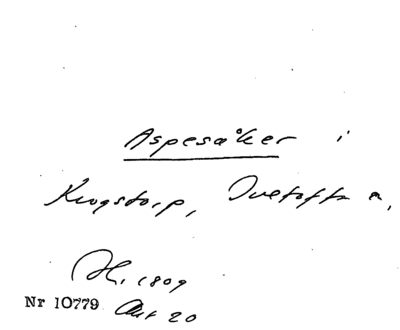 Aspesåker i
Krogstorp, Tvetofta s,
1809
Nr 10779 Akt 20